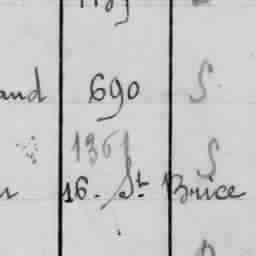 and 690 S
1361 S
16. St. Brice